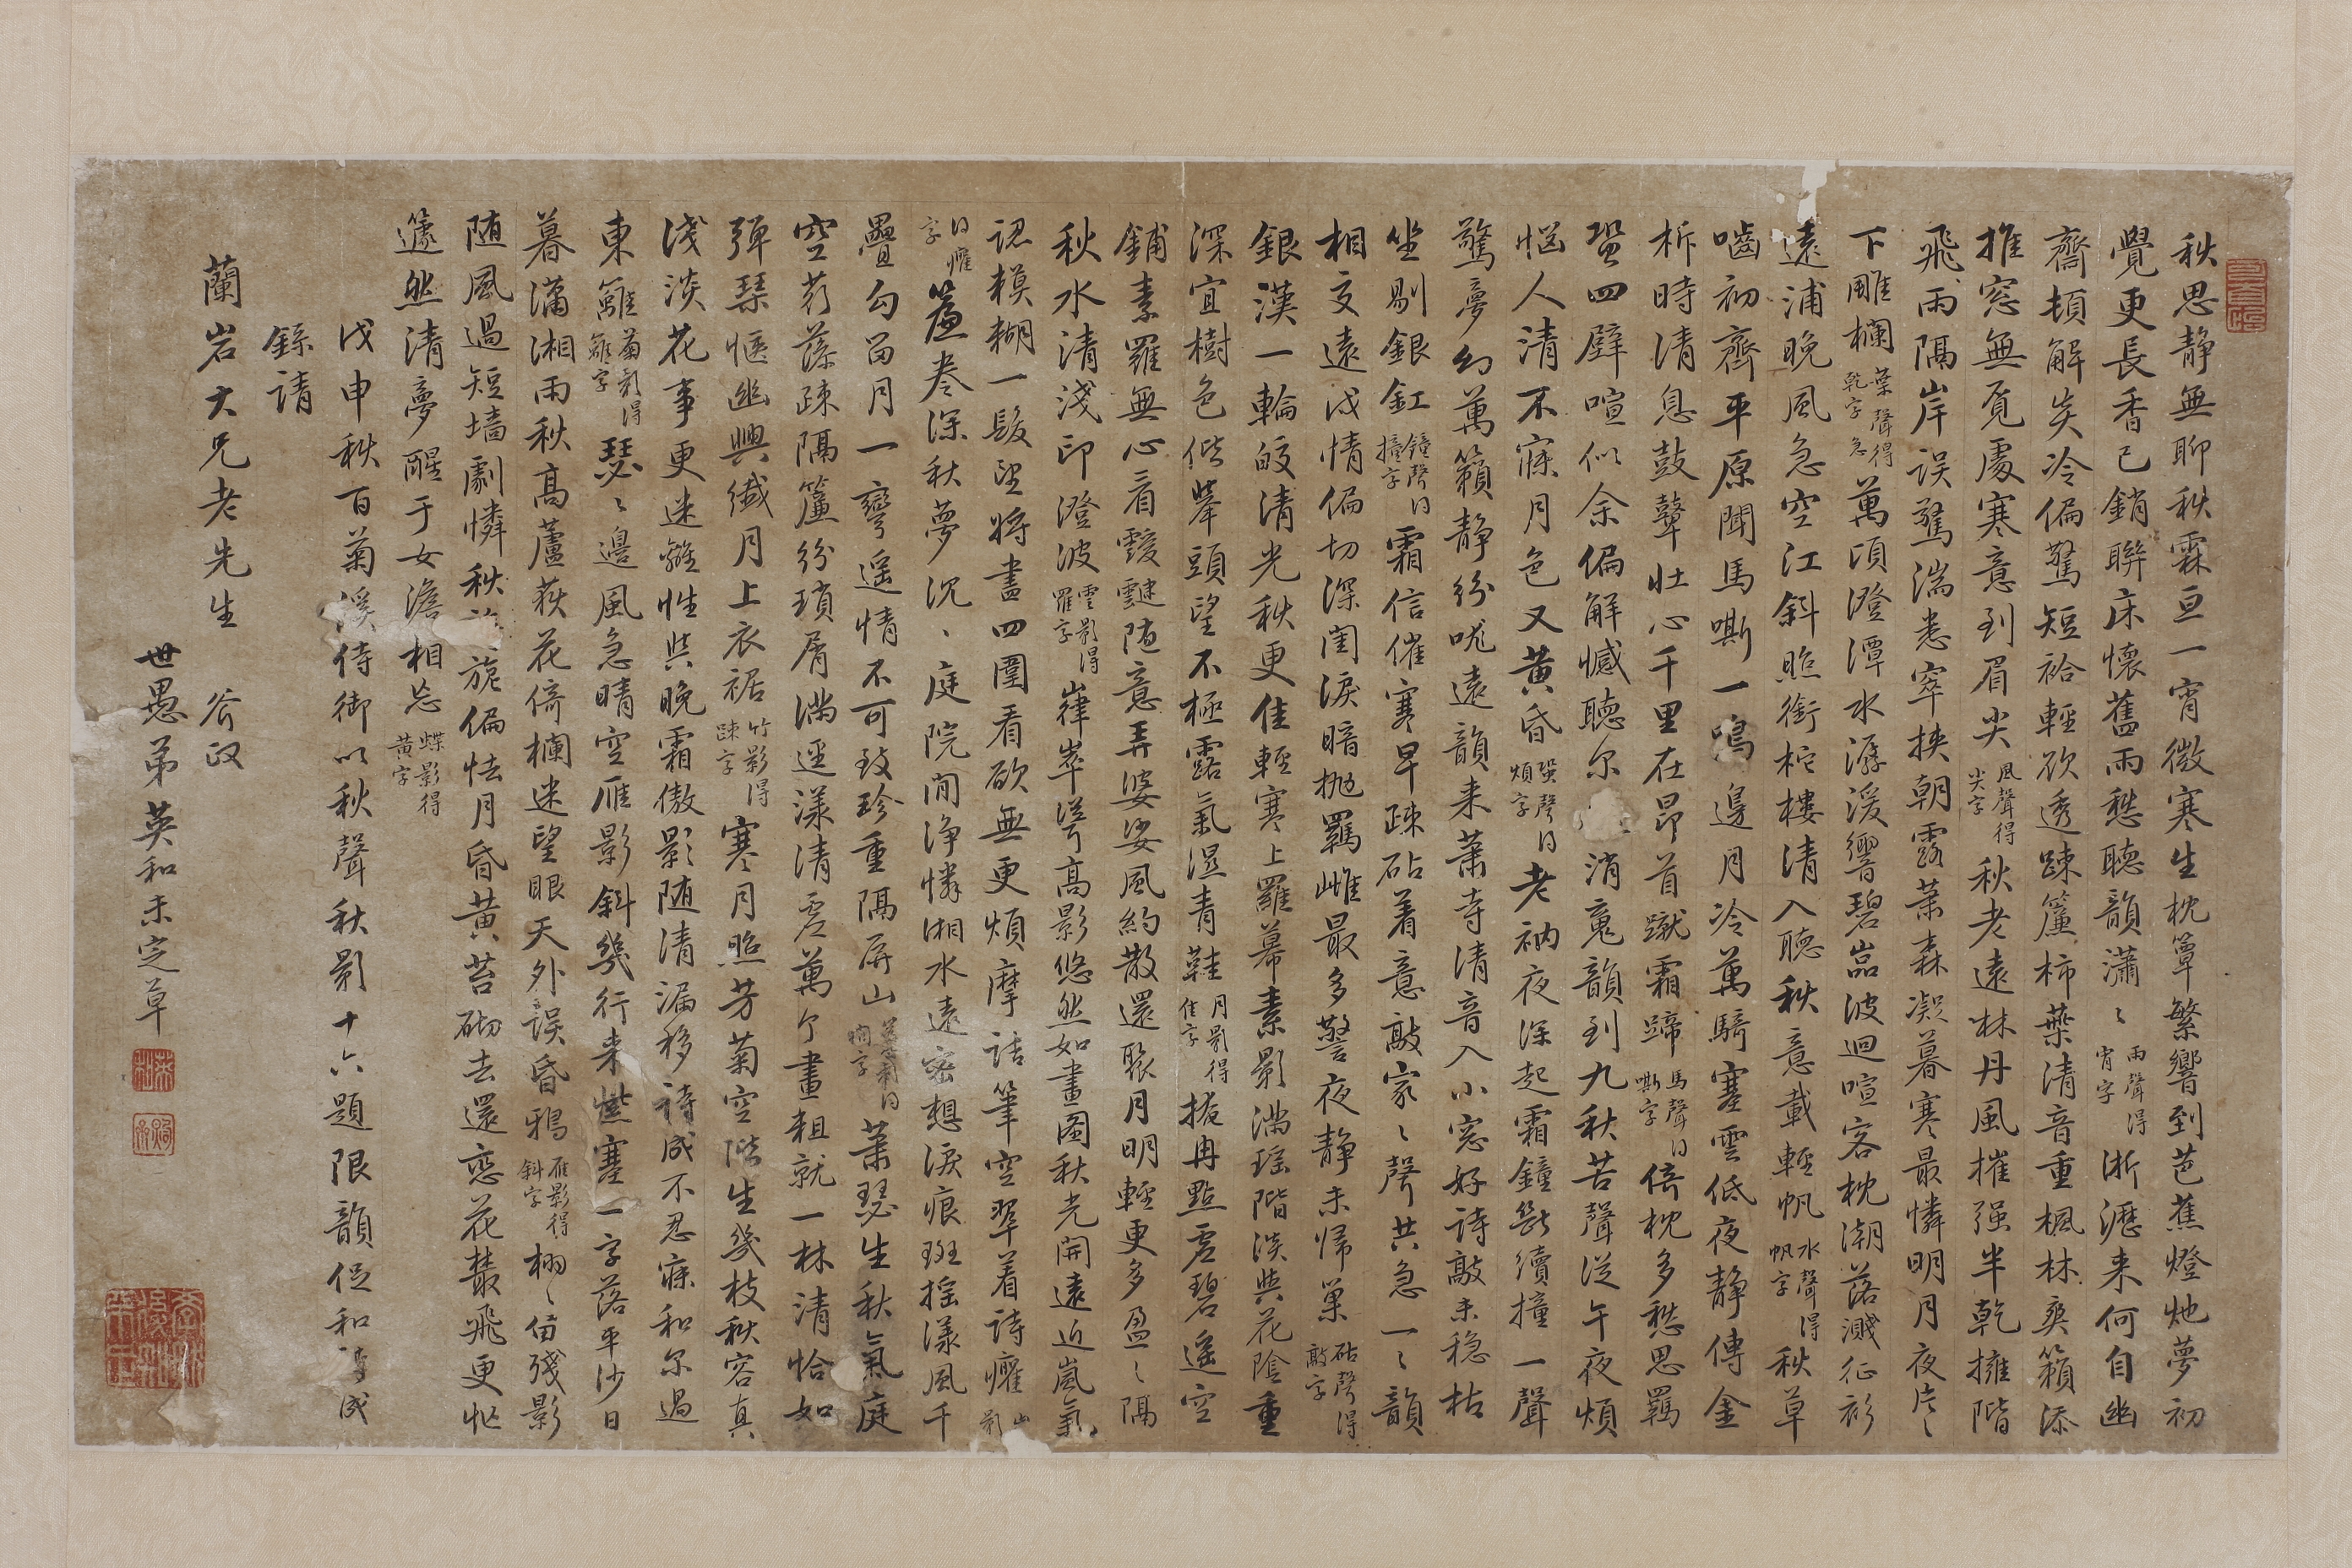 秋思靜無聊秋霖亘一宵微寒生枕簟繁響到芭蕉燈灺夢初
覺更長香已銷聯床懷舊雨愁聽韻瀟〻雨聲得宵字淅瀝來何自幽
齋頓解炎冷偏驚短袷輕欲透疎簾柿葉清音重楓林爽籟添
推窓無覔處寒意到眉尖風聲得尖字秋老遠林丹風摧强半乾擁階
飛雨隔岸誤驚湍悉窣挾朝露蕭森凝暮寒最憐明月夜片〻
下雕欄葉聲得乾字急萬頃澄潭水潺湲響碧嵓波迴喧客枕潮落濺征衫
遠浦晚風急空江斜照銜柁樓清入聽秋意載輕帆水聲得帆字秋草
嚙初齊平原聞馬嘶一鳴邊月冷萬騎塞雲低夜靜傳金
柝時清息鼓鼙壯心千里在昂首蹴霜蹄馬聲得嘶字倚枕多愁思羈
蛩四壁喧似余偏解憾聽尔消䰟韻到九秋苦聲從午夜煩
惱人清不寐月色又黃昏蛩聲得煩字老衲夜深起霜鐘斷續撞一聲
驚夢幻萬籟靜紛哤遠韻来蕭寺清音入小窓好詩敲未穏枯
坐剔銀釭鐘聲得撞字霜信催寒早疎砧着意敲家〻聲共急一〻韻
相交遠戍情偏切深閨淚暗抛羈雌最多警夜靜未歸巢砧聲得敲字
銀漢一輪皎清光秋更佳輕寒上羅幕素影滿瑶階淡與花陰重
深宜樹色偕擧頭望不極露氣濕青鞋月影得佳字掩冉點虛碧遥空
鋪素羅無心看靉靆隨意弄婆娑風約散還聚月明輕更多盈〻隔
秋水清淺印澄波雲影得羅字嵂崒送高影悠然如畫圖秋光開遠近嵐氣
認模糊一髮望將盡四圍看欲無更煩摩詰筆空翠着詩癯山影
得癯字簾卷深秋夢沉〻庭院閒淨憐湘水遠密想淚痕斑摇漾風千
疊勾留月一彎遥情不可致珍重隔屏山簾影得間字蕭瑟生秋氣庭
空荇藻疎隔簾紛瑣屑滿逕漾清虛萬个畫粗就一林清恰如
彈琴愜幽興纖月上衣裾竹影得疎字寒月照芳菊空階生幾枝秋容真
淺淡花事更迷離性與晚霜傲影隨清漏移詩成不忍寐和尔過
東籬菊影得籬字瑟〻邊風急晴空雁影斜幾行来紫塞一字落平沙日
暮瀟湘雨秋高蘆荻花倚欄迷望眼天外誤昏鴉雁影得斜字栩〻留殘影
随風過短墙劇憐秋旎偏怯月昏黃苔砌去還戀花叢飛更忙
蘧然清夢醒于女澹相忘蝶影得黃字
戊申秋百菊溪侍御以秋聲秋影十六題限韻促和詩成
録請
蘭岩大兄老先生　斧政
世愚弟英和未定草